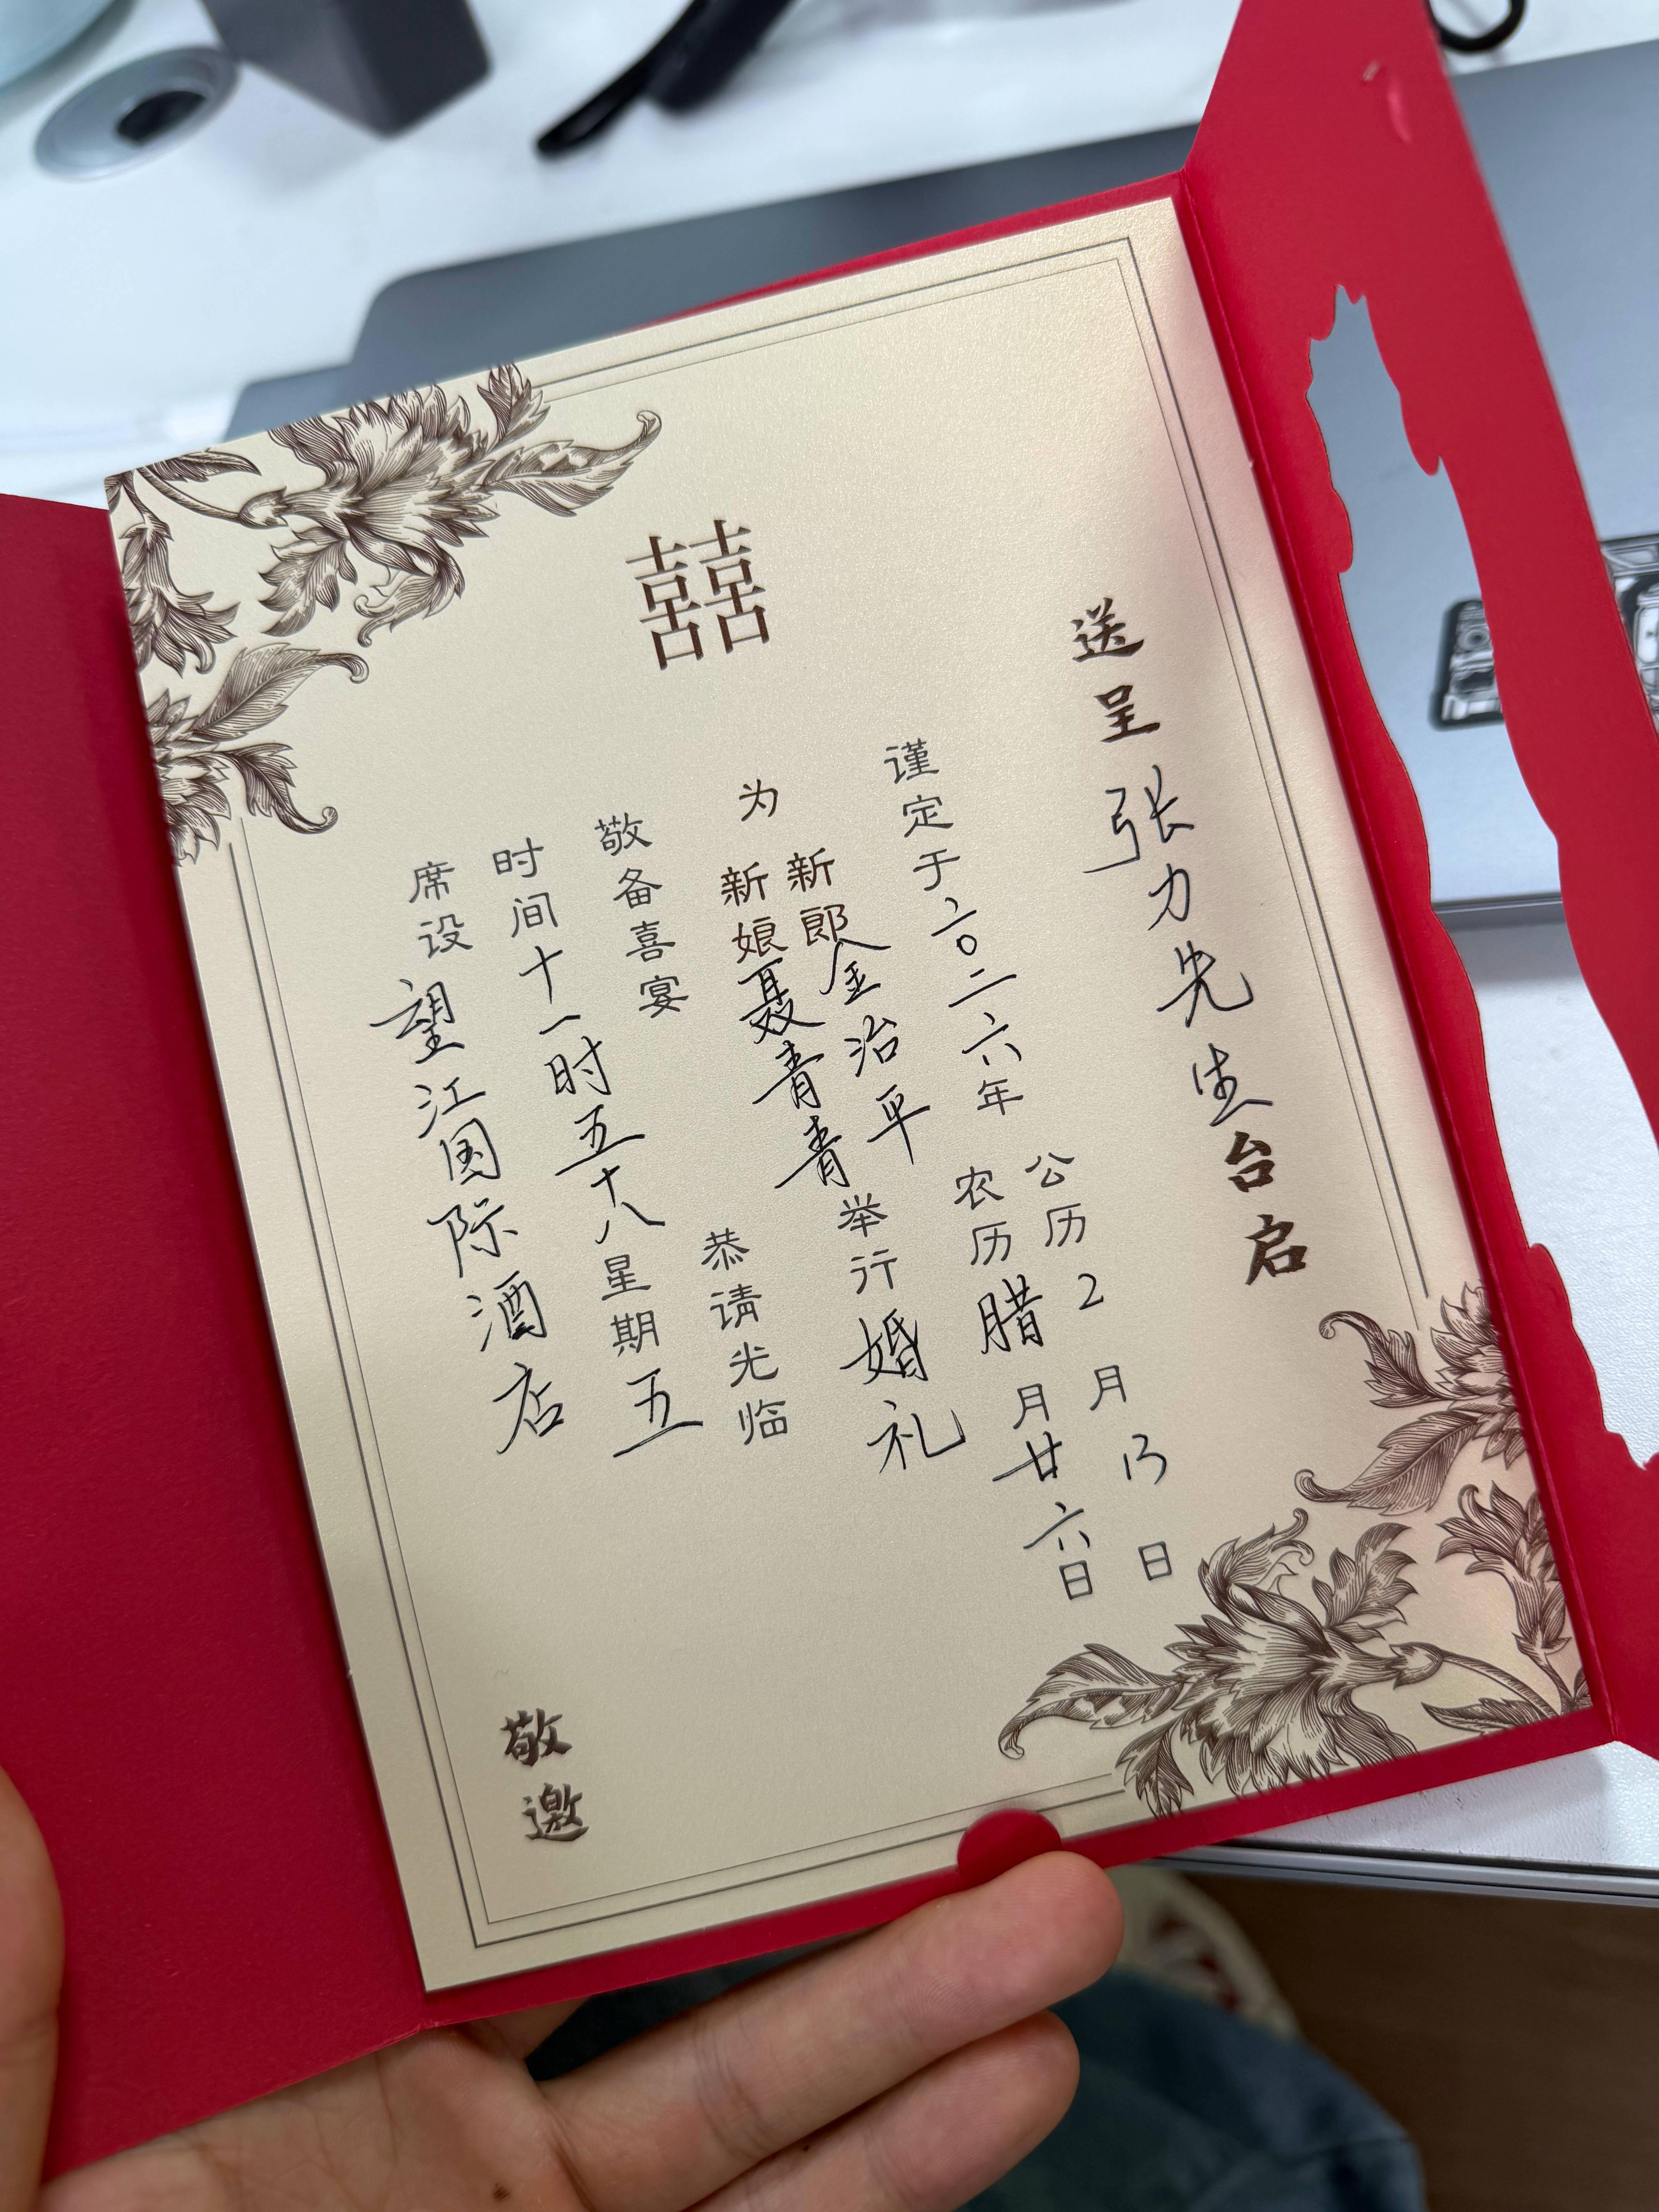 囍
送呈张力先生台启
谨定于二〇二六年
公历2月13日
农历腊月廿六日
为
新郎金治平
新娘聂青青
举行婚礼
敬备喜宴
恭请光临
时间十一时五十八星期五
席设望江国际酒店
敬邀